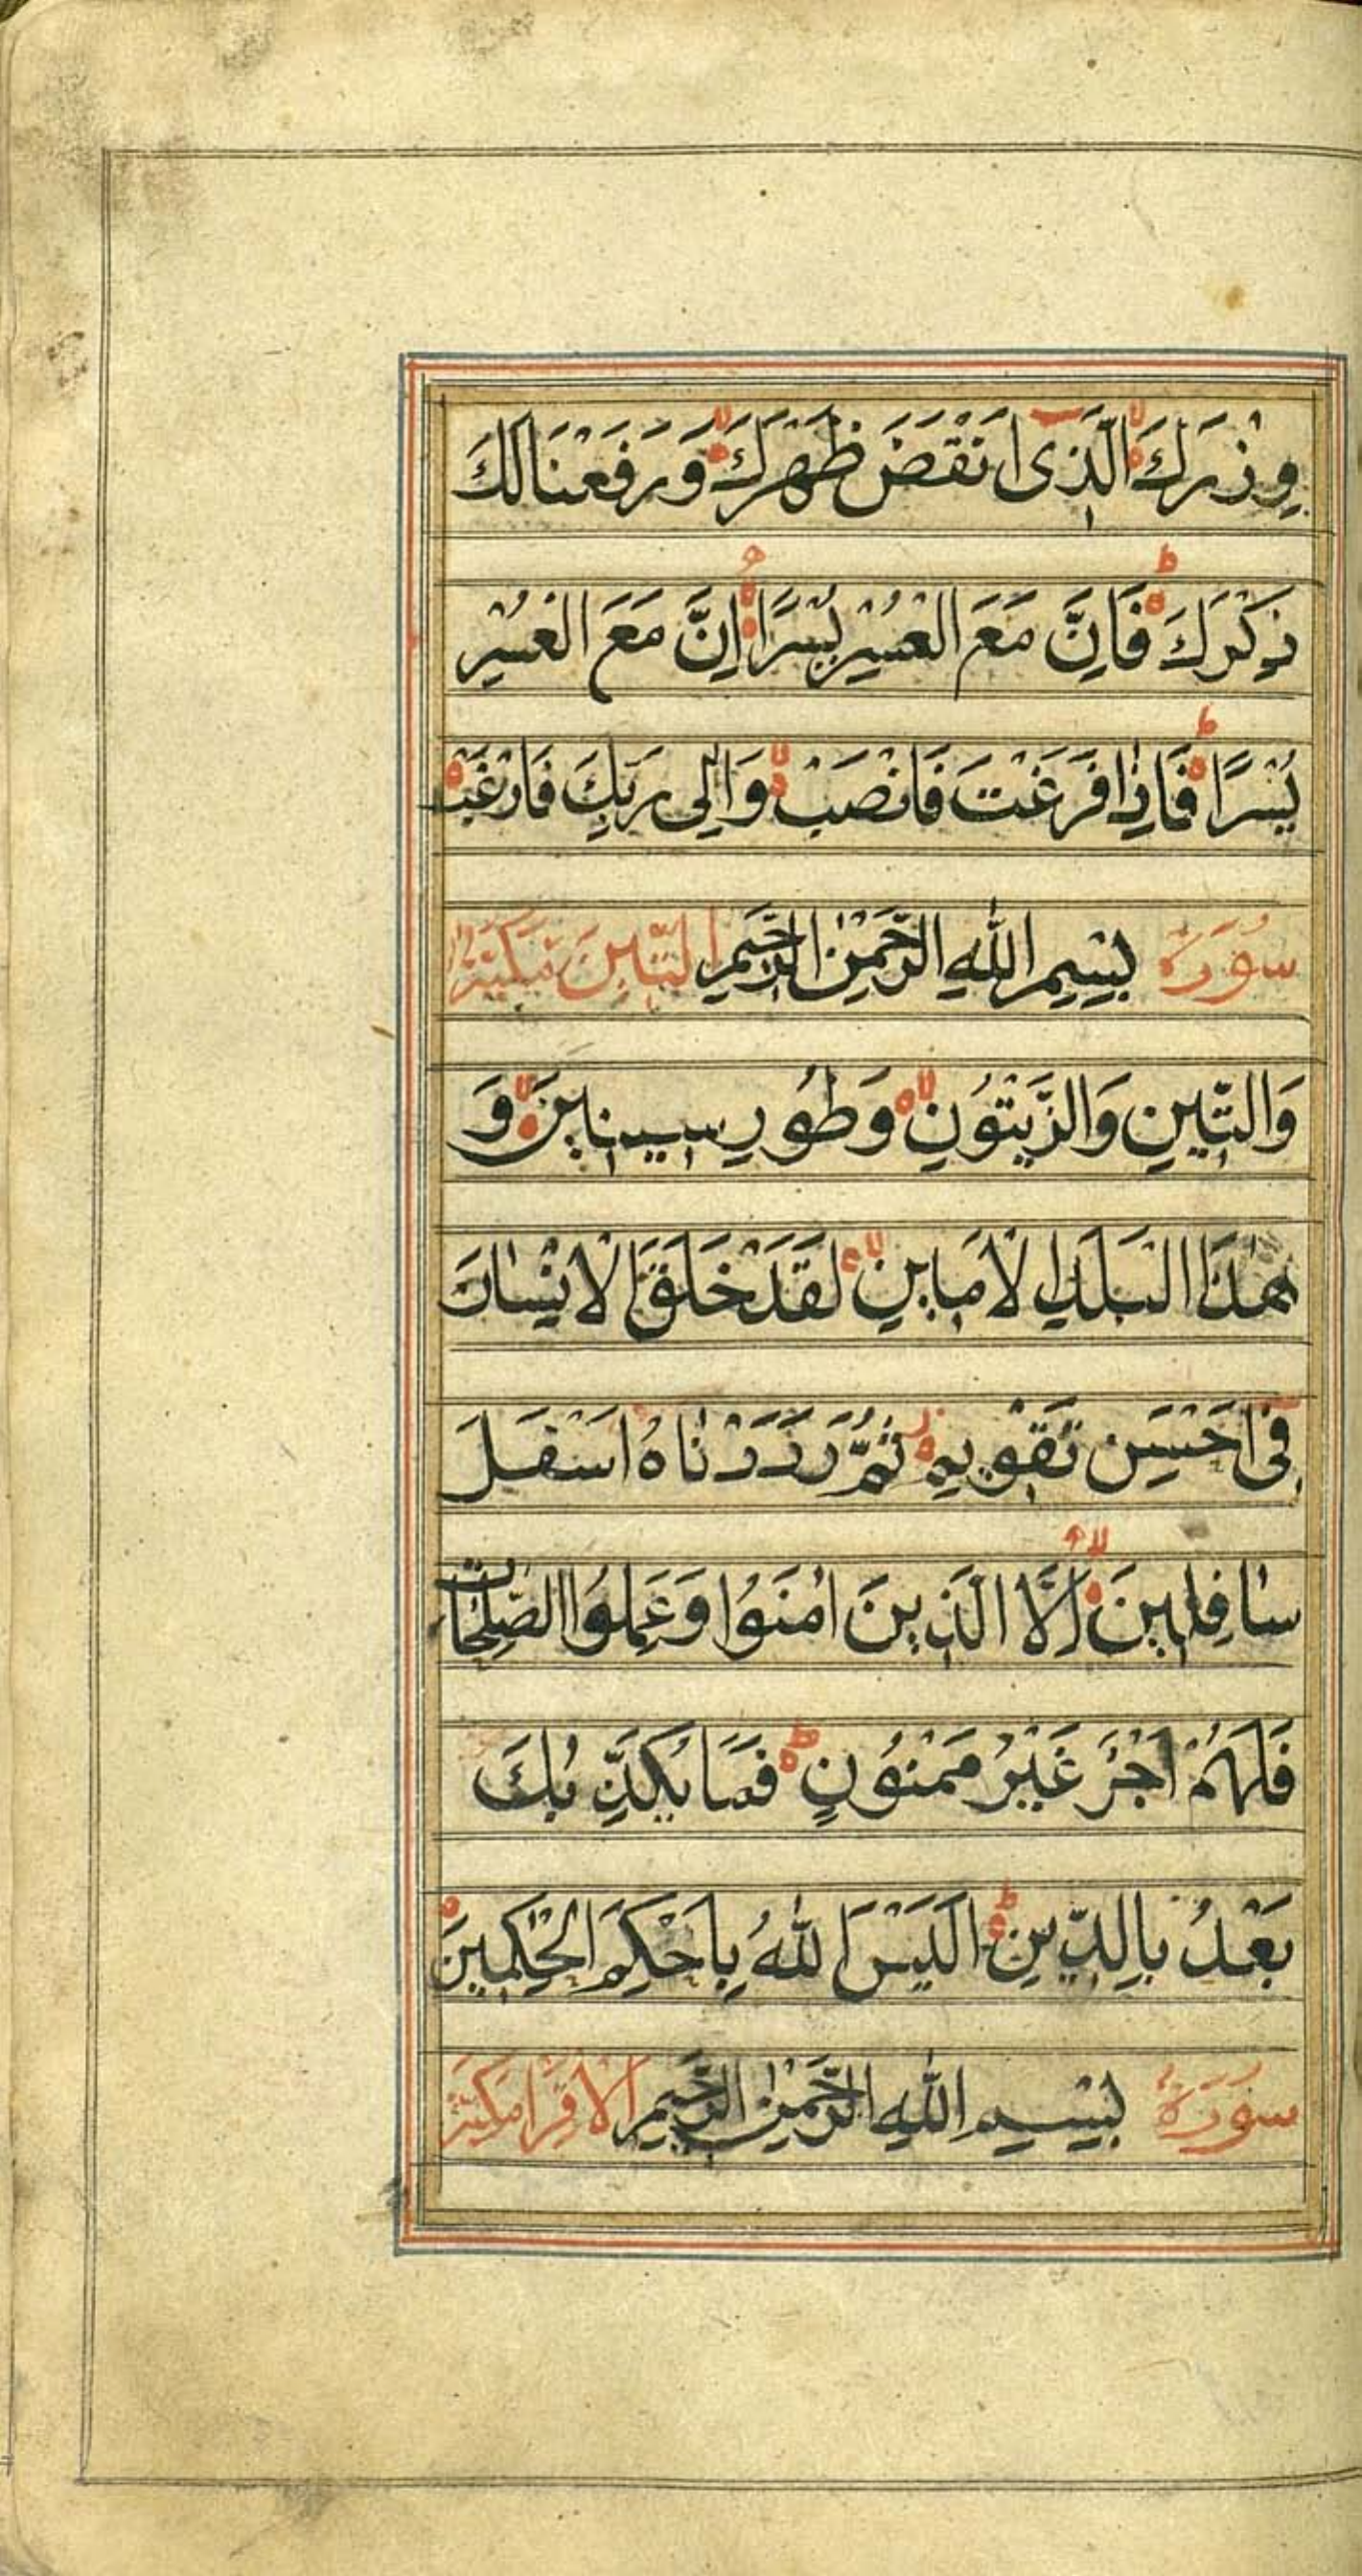 وِزْرَكَ الَّذِى اَنْقَضَ ظَهْرَكَ وَرَفَعْنَا لَكَ
ذِكْرَكَ فَاِنَّ مَعَ الْعُسْرِ يُسْرًا اِنَّ مَعَ الْعُسْرِ
يُسْرًا فَاِذَا فَرَغْتَ فَانْصَبْ وَاِلٰى رَبِّكَ فَارْغَبْ
سُوْرَة بِسْمِ اللّٰهِ الرَّحْمٰنِ الرَّحِيْمِ التِّيْنِ مَكِّيَّة
وَالتِّيْنِ وَالزَّيْتُوْنِ وَطُوْرِ سِيْنِيْنَ وَ
هٰذَا الْبَلَدِ الْاَمِيْنِ لَقَدْ خَلَقْنَا الْاِنْسَانَ
فِى اَحْسَنِ تَقْوِيْمٍ ثُمَّ رَدَدْنَاهُ اَسْفَلَ
سَافِلِيْنَ اِلَّا الَّذِيْنَ اٰمَنُوْا وَعَمِلُوا الصّٰلِحَاتِ
فَلَهُمْ اَجْرٌ غَيْرُ مَمْنُوْنٍ فَمَا يُكَذِّبُكَ
بَعْدُ بِالدِّيْنِ اَلَيْسَ اللّٰهُ بِاَحْكَمِ الْحٰكِمِيْنَ
سُوْرَة بِسْمِ اللّٰهِ الرَّحْمٰنِ الرَّحِيْمِ الْاقرا مَكِّيَّة